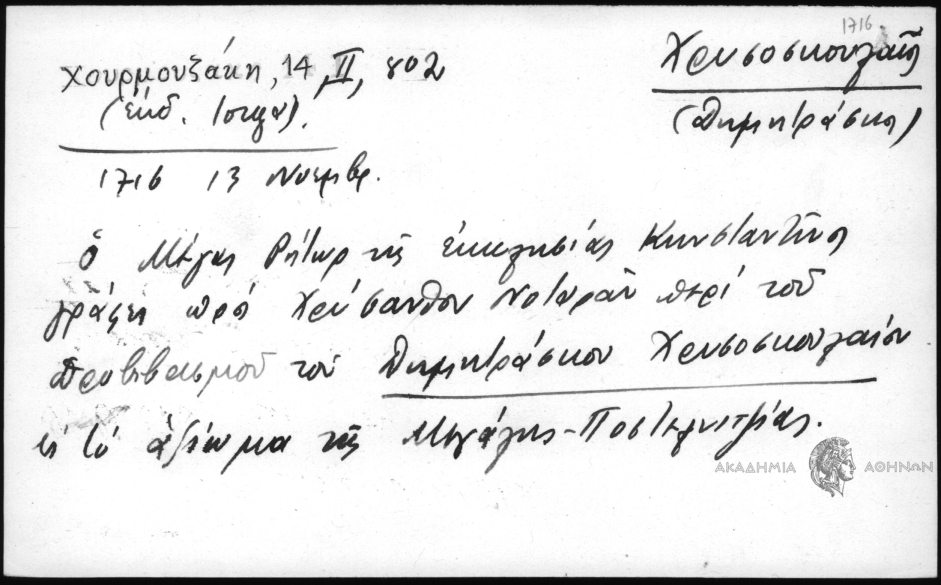 1716
Χουρμουζάκη, 14, II, 802
(έκδ. Ιστρά).
Χρυσοσκουλαῖος
(Δημητράσκος)
1716 13 Νοεμβρ.
ὁ Μέγας Ρήτωρ τῆς ἐκκλησίας Κωνσταντῖνος
γράφει πρός Χρύσανθον Νοταρᾶν περί τοῦ
προβιβασμοῦ τοῦ Δημητράσκου Χρυσοσκουλαίου
εἰς τό ἀξίωμα τῆς Μεγάλης-Ποστελνιτζίας.
ΑΚΑΔΗΜΙΑ ΑΘΗΝΩΝ